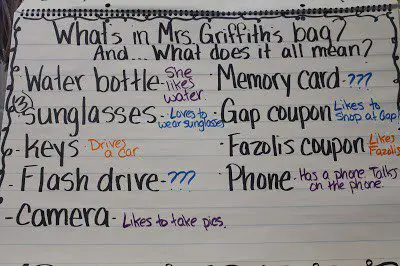 What's in Mrs. Griffiths bag?
And... What does it all mean?
Water bottle- She likes water
(3) Sunglasses- Loves to wear sunglasses
- Keys - Drives a car
- Flash drive - ???
- Camera - Likes to take pics.
- Memory card - ???
- Gap coupon Likes to Shop at Gap!
- Fazolis coupon Likes Fazolis
- Phone - Has a phone. Talks on the phone.